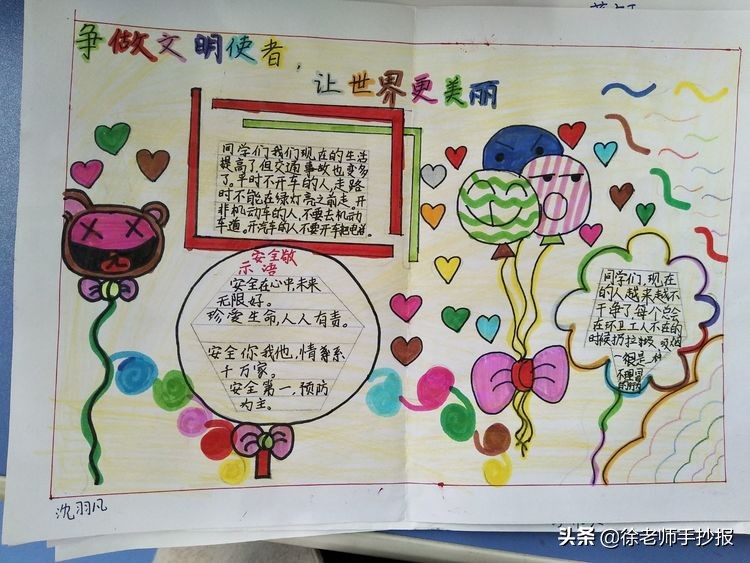 争做文明使者，
让世界更美丽
同学们我们现在的生活
提高了,但交通事故也变多
了。平时不开车的人,走路
时不能在绿灯亮之前走。开
非机动车的人,不要去机动
车道。开汽车的人不要开车把电话。
安全敬
示语
安全在心中,未来
无限好。
珍爱生命,人人有责。
安全你我他,情尊系
千万家。
安全第一,预防
为主。
同学们,现在
的人越来越不
干净了,每个总会
在环卫工人不在的
时候扔垃圾
一很是
沈羽凡
头条@徐老师手抄报